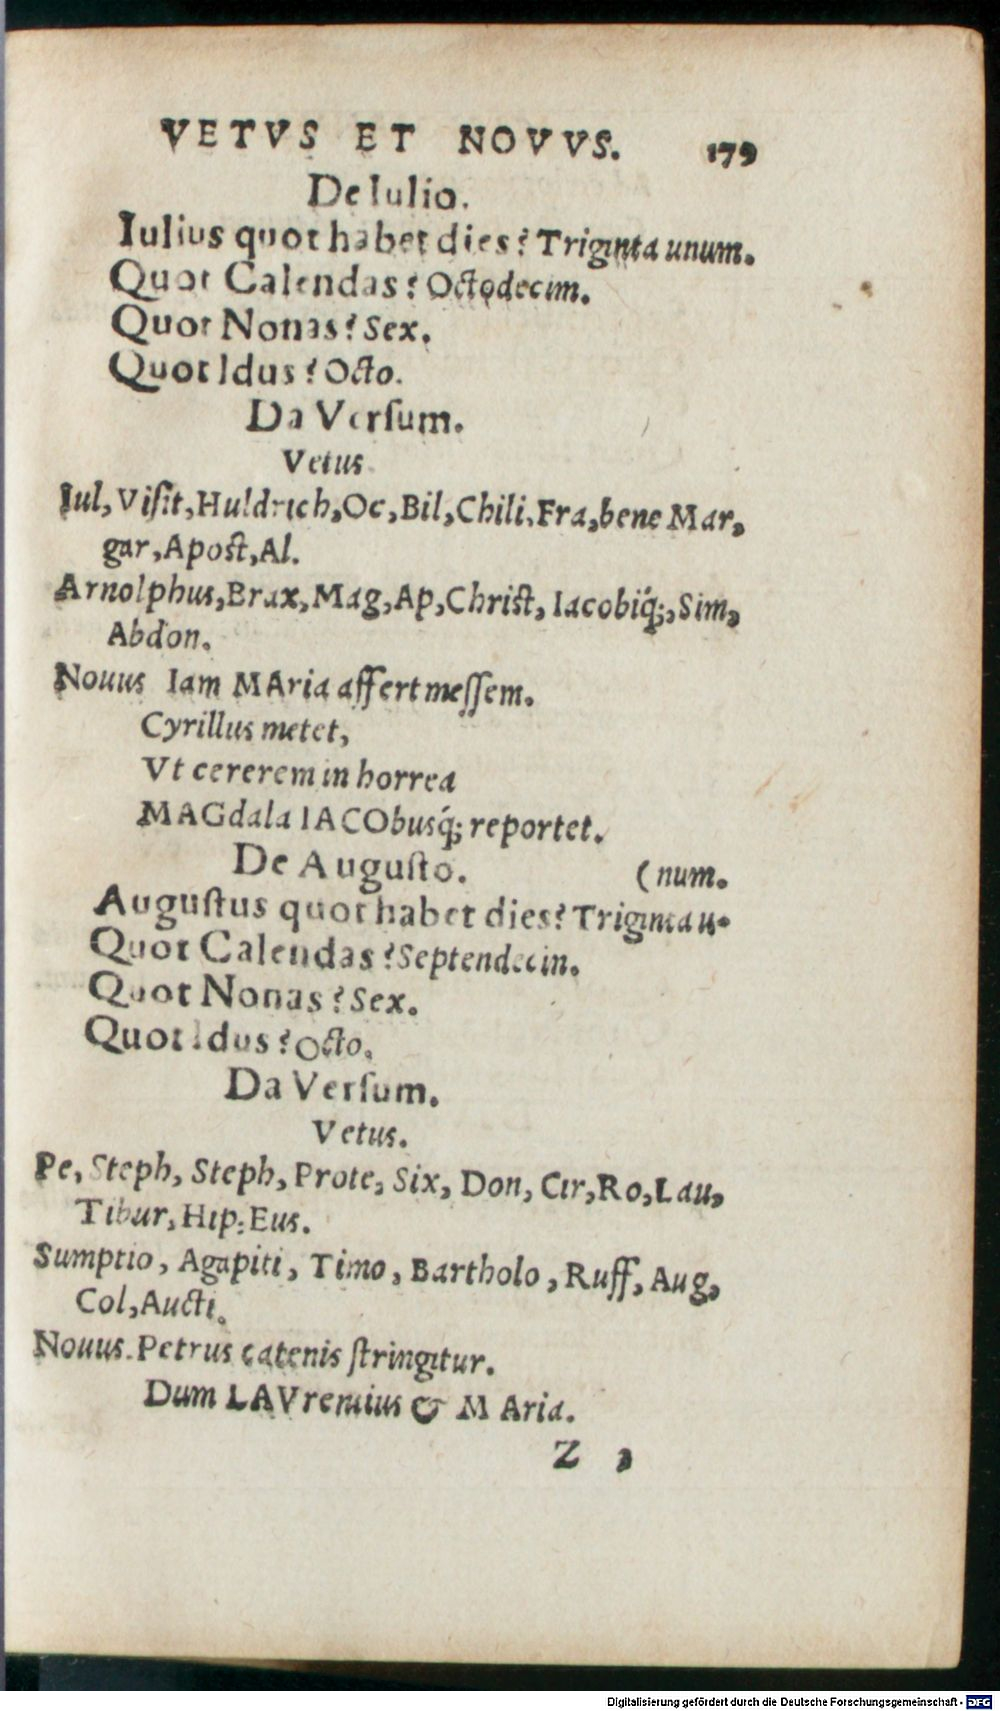 VETVS ET NOVVS. 179
De Iulio.
Iulius quot habet dies? Triginta unum.
Quot Calendas? Octodecim.
Quot Nonas? Sex.
Quot Idus? Octo.
Da Verſum.
Vetus
Iul, Viſit, Huldrich, Oc, Bil, Chili, Fra, bene Mar,
gar, Apoſt, Al.
Arnolphus, Brax, Mag, Ap, Chriſt, Iacobiq́;, Sim,
Abdon.
Nouus Iam MAria affert meſſem.
Cyrillus metet,
Vt cererem in horrea
MAGdala IACObusq́; reportet.
De Auguſto. (num.
Auguſtus quot habet dies? Triginta u-
Quot Calendas? Septendecin.
Quot Nonas? Sex.
Quot Idus? Octo.
Da Verſum.
Vetus.
Pe, Steph, Steph, Prote, Six, Don, Cir, Ro, Lau,
Tibur, Hip, Eus.
Sumptio, Agapiti, Timo, Bartholo, Ruff, Aug,
Col, Aucti.
Nouus. Petrus catenis ſtringitur.
Dum LAVrentius & MAria.
Z 3
Digitalisierung gefördert durch die Deutsche Forschungsgemeinschaft - DFG